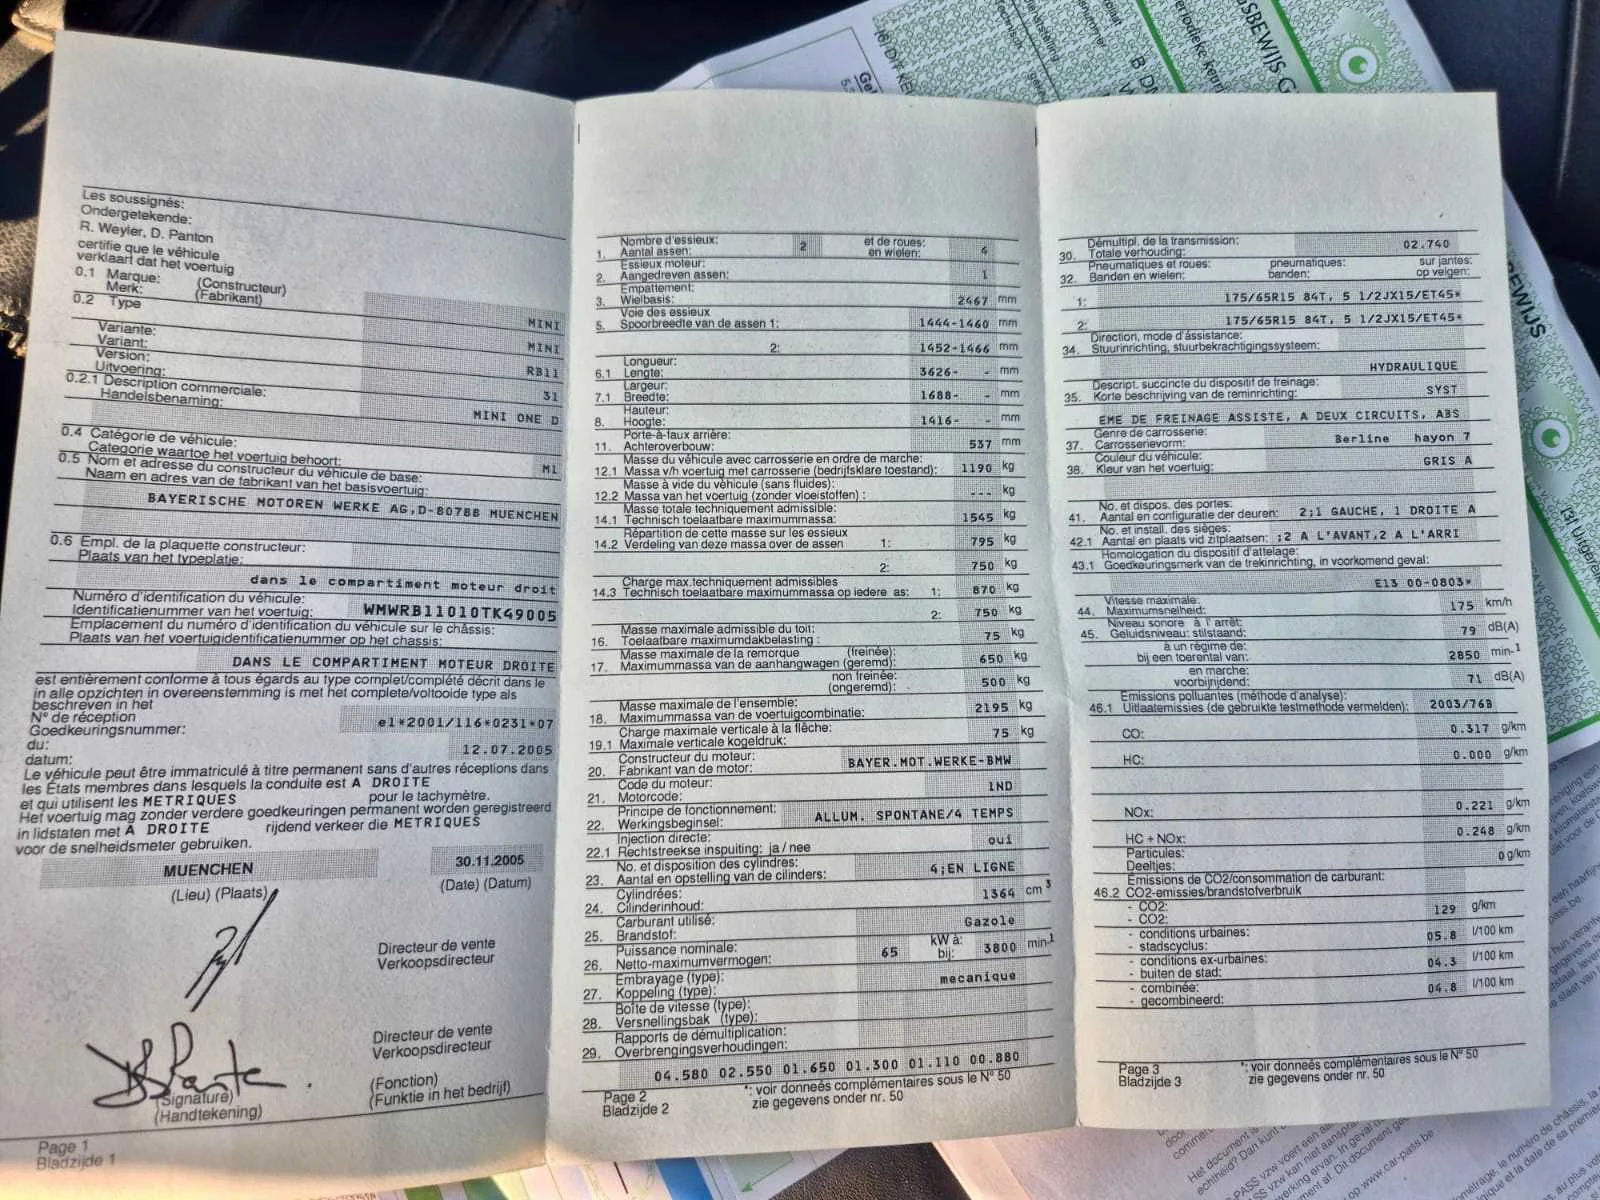 Les soussignés:
Ondergetekende:
R. Weyler, D. Panton
certifie que le véhicule
verklaart dat het voertuig
0.1 Marque: (Constructeur)
Merk: (Fabrikant)
MINI
0.2 Type
MINI
Variante:
Variant:
RB11
Version:
Uitvoering:
31
0.2.1 Description commerciale:
Handelsbenaming:
MINI ONE D
0.4 Catégorie de véhicule:
Categorie waartoe het voertuig behoort:
M1
0.5 Nom et adresse du constructeur du véhicule de base:
Naam en adres van de fabrikant van het basisvoertuig:
BAYERISCHE MOTOREN WERKE AG,D-80788 MUENCHEN
0.6 Empl. de la plaquette constructeur:
Plaats van het typeplatie:
dans le compartiment moteur droit
Numéro d'identification du véhicule:
Identificatienummer van het voertuig: WMWRB11010TK49005
Emplacement du numéro d'identification du véhicule sur le châssis:
Plaats van het voertuigidentificatienummer op het chassis:
DANS LE COMPARTIMENT MOTEUR DROITE
est entièrement conforme à tous égards au type complet/complété décrit dans le
in alle opzichten in overeenstemming is met het complete/voltooide type als
beschreven in het
N° de réception
Goedkeuringsnummer: e1*2001/116*0231*07
du:
datum: 12.07.2005
Le véhicule peut être immatriculé à titre permanent sans d'autres réceptions dans
les Etats membres dans lesquels la conduite est A DROITE
et qui utilisent les METRIQUES pour le tachymètre.
Het voertuig mag zonder verdere goedkeuringen permanent worden geregistreerd
in lidstaten met A DROITE rijdend verkeer die METRIQUES
voor de snelheidsmeter gebruiken.
MUENCHEN 30.11.2005
(Lieu) (Plaats) (Date) (Datum)
Directeur de vente
Verkoopsdirecteur
Directeur de vente
Verkoopsdirecteur
(Signature) (Fonction)
(Handtekening) (Funktie in het bedrijf)
Page 1
Bladzijde 1
1. Nombre d'essieux: 2 et de roues: 4
Aantal assen: en wielen:
2. Essieux moteur:
Aangedreven assen: 1
3. Empattement:
Wielbasis: 2467 mm
5. Voie des essieux
Spoorbreedte van de assen 1: 1444-1460 mm
2: 1452-1466 mm
6.1 Longueur:
Lengte: 3626- - mm
7.1 Largeur:
Breedte: 1688- - mm
8. Hauteur:
Hoogte: 1416- - mm
11. Porte-à-faux arrière:
Achteroverbouw: 537 mm
12.1 Masse du véhicule avec carrosserie en ordre de marche:
Massa v/h voertuig met carrosserie (bedrijfsklare toestand): 1190 kg
12.2 Masse à vide du véhicule (sans fluides):
Massa van het voertuig (zonder vloeistoffen) : --- kg
14.1 Masse totale techniquement admissible:
Technisch toelaatbare maximummassa: 1545 kg
14.2 Répartition de cette masse sur les essieux
Verdeling van deze massa over de assen 1: 795 kg
2: 750 kg
14.3 Charge max.techniquement admissibles
Technisch toelaatbare maximummassa op iedere as: 1: 870 kg
2: 750 kg
16. Masse maximale admissible du toit:
Toelaatbare maximumdakbelasting : 75 kg
17. Masse maximale de la remorque (freinée):
Maximummassa van de aanhangwagen (geremd): 650 kg
non freinée:
(ongeremd): 500 kg
18. Masse maximale de l'ensemble:
Maximummassa van de voertuigcombinatie: 2195 kg
19.1 Charge maximale verticale à la flêche:
Maximale verticale kogeldruk: 75 kg
20. Constructeur du moteur:
Fabrikant van de motor: BAYER.MOT.WERKE-BMW
21. Code du moteur:
Motorcode: 1ND
22. Principe de fonctionnement:
Werkingsbeginsel: ALLUM. SPONTANE/4 TEMPS
22.1 Injection directe:
Rechtstreekse inspuiting: ja / nee oui
23. No. et disposition des cylindres:
Aantal en opstelling van de cilinders: 4;EN LIGNE
24. Cylindrées:
Cilinderinhoud: 1364 cm³
25. Carburant utilisé:
Brandstof: Gazole
26. Puissance nominale: 65 kW à: 3800 min-1
Netto-maximumvermogen: bij:
27. Embrayage (type):
Koppeling (type): mecanique
28. Boîte de vitesse (type):
Versnellingsbak (type):
29. Rapports de démultiplication:
Overbrengingsverhoudingen:
04.580 02.550 01.650 01.300 01.110 00.880
Page 2 *: voir donneés complémentaires sous le N° 50
Bladzijde 2 zie gegevens onder nr. 50
30. Démultipl. de la transmission:
Totale verhouding: 02.740
32. Pneumatiques et roues: pneumatiques: sur jantes:
Banden en wielen: banden: op velgen:
1: 175/65R15 84T, 5 1/2JX15/ET45*
2: 175/65R15 84T, 5 1/2JX15/ET45*
34. Direction, mode d'ássistance:
Stuurinrichting, stuurbekrachtigingssysteem:
HYDRAULIQUE
35. Descript. succincte du dispositif de freinage:
Korte beschrijving van de reminrichting: SYST
EME DE FREINAGE ASSISTE, A DEUX CIRCUITS, ABS
37. Genre de carrosserie:
Carrosserievorm: Berline hayon 7
38. Couleur du véhicule:
Kleur van het voertuig: GRIS A
41. No. et dispos. des portes:
Aantal en configuratie der deuren: 2;1 GAUCHE, 1 DROITE A
42.1 No. et install. des sièges:
Aantal en plaats vid zitplaatsen: ;2 A L'AVANT,2 A L'ARRI
43.1 Homologation du dispositif d'attelage:
Goedkeuringsmerk van de trekinrichting, in voorkomend geval:
E13 00-0803*
44. Vitesse maximale:
Maximumsnelheid: 175 km/h
45. Niveau sonore à l'arrêt:
Geluidsniveau: stilstaand: 79 dB(A)
à un régime de:
bij een toerental van: 2850 min-1
en marche:
voorbijrijdend: 71 dB(A)
46.1 Emissions polluantes (méthode d'analyse):
Uitlaatemissies (de gebruikte testmethode vermelden): 2003/76B
CO: 0.317 g/km
HC: 0.000 g/km
NOx: 0.221 g/km
HC + NOx: 0.248 g/km
Particules:
Deeltjes: 0 g/km
46.2 Émissions de CO2/consommation de carburant:
CO2-emissies/brandstofverbruik
- CO2:
- CO2: 129 g/km
- conditions urbaines:
- stadscyclus: 05.8 l/100 km
- conditions ex-urbaines:
- buiten de stad: 04.3 l/100 km
- combinée:
- gecombineerd: 04.8 l/100 km
Page 3 *: voir donneés complémentaires sous le N° 50
Bladzijde 3 zie gegevens onder nr. 50